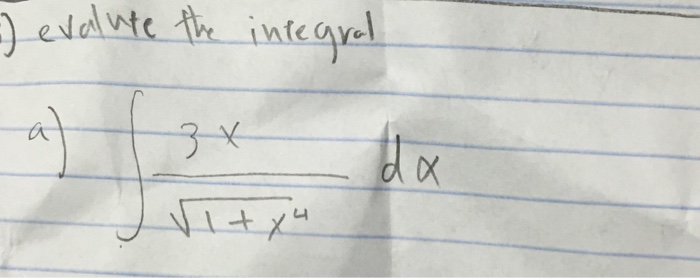 i) evalute the integral
a) ∫ 3x / √(1 + x⁴) dx